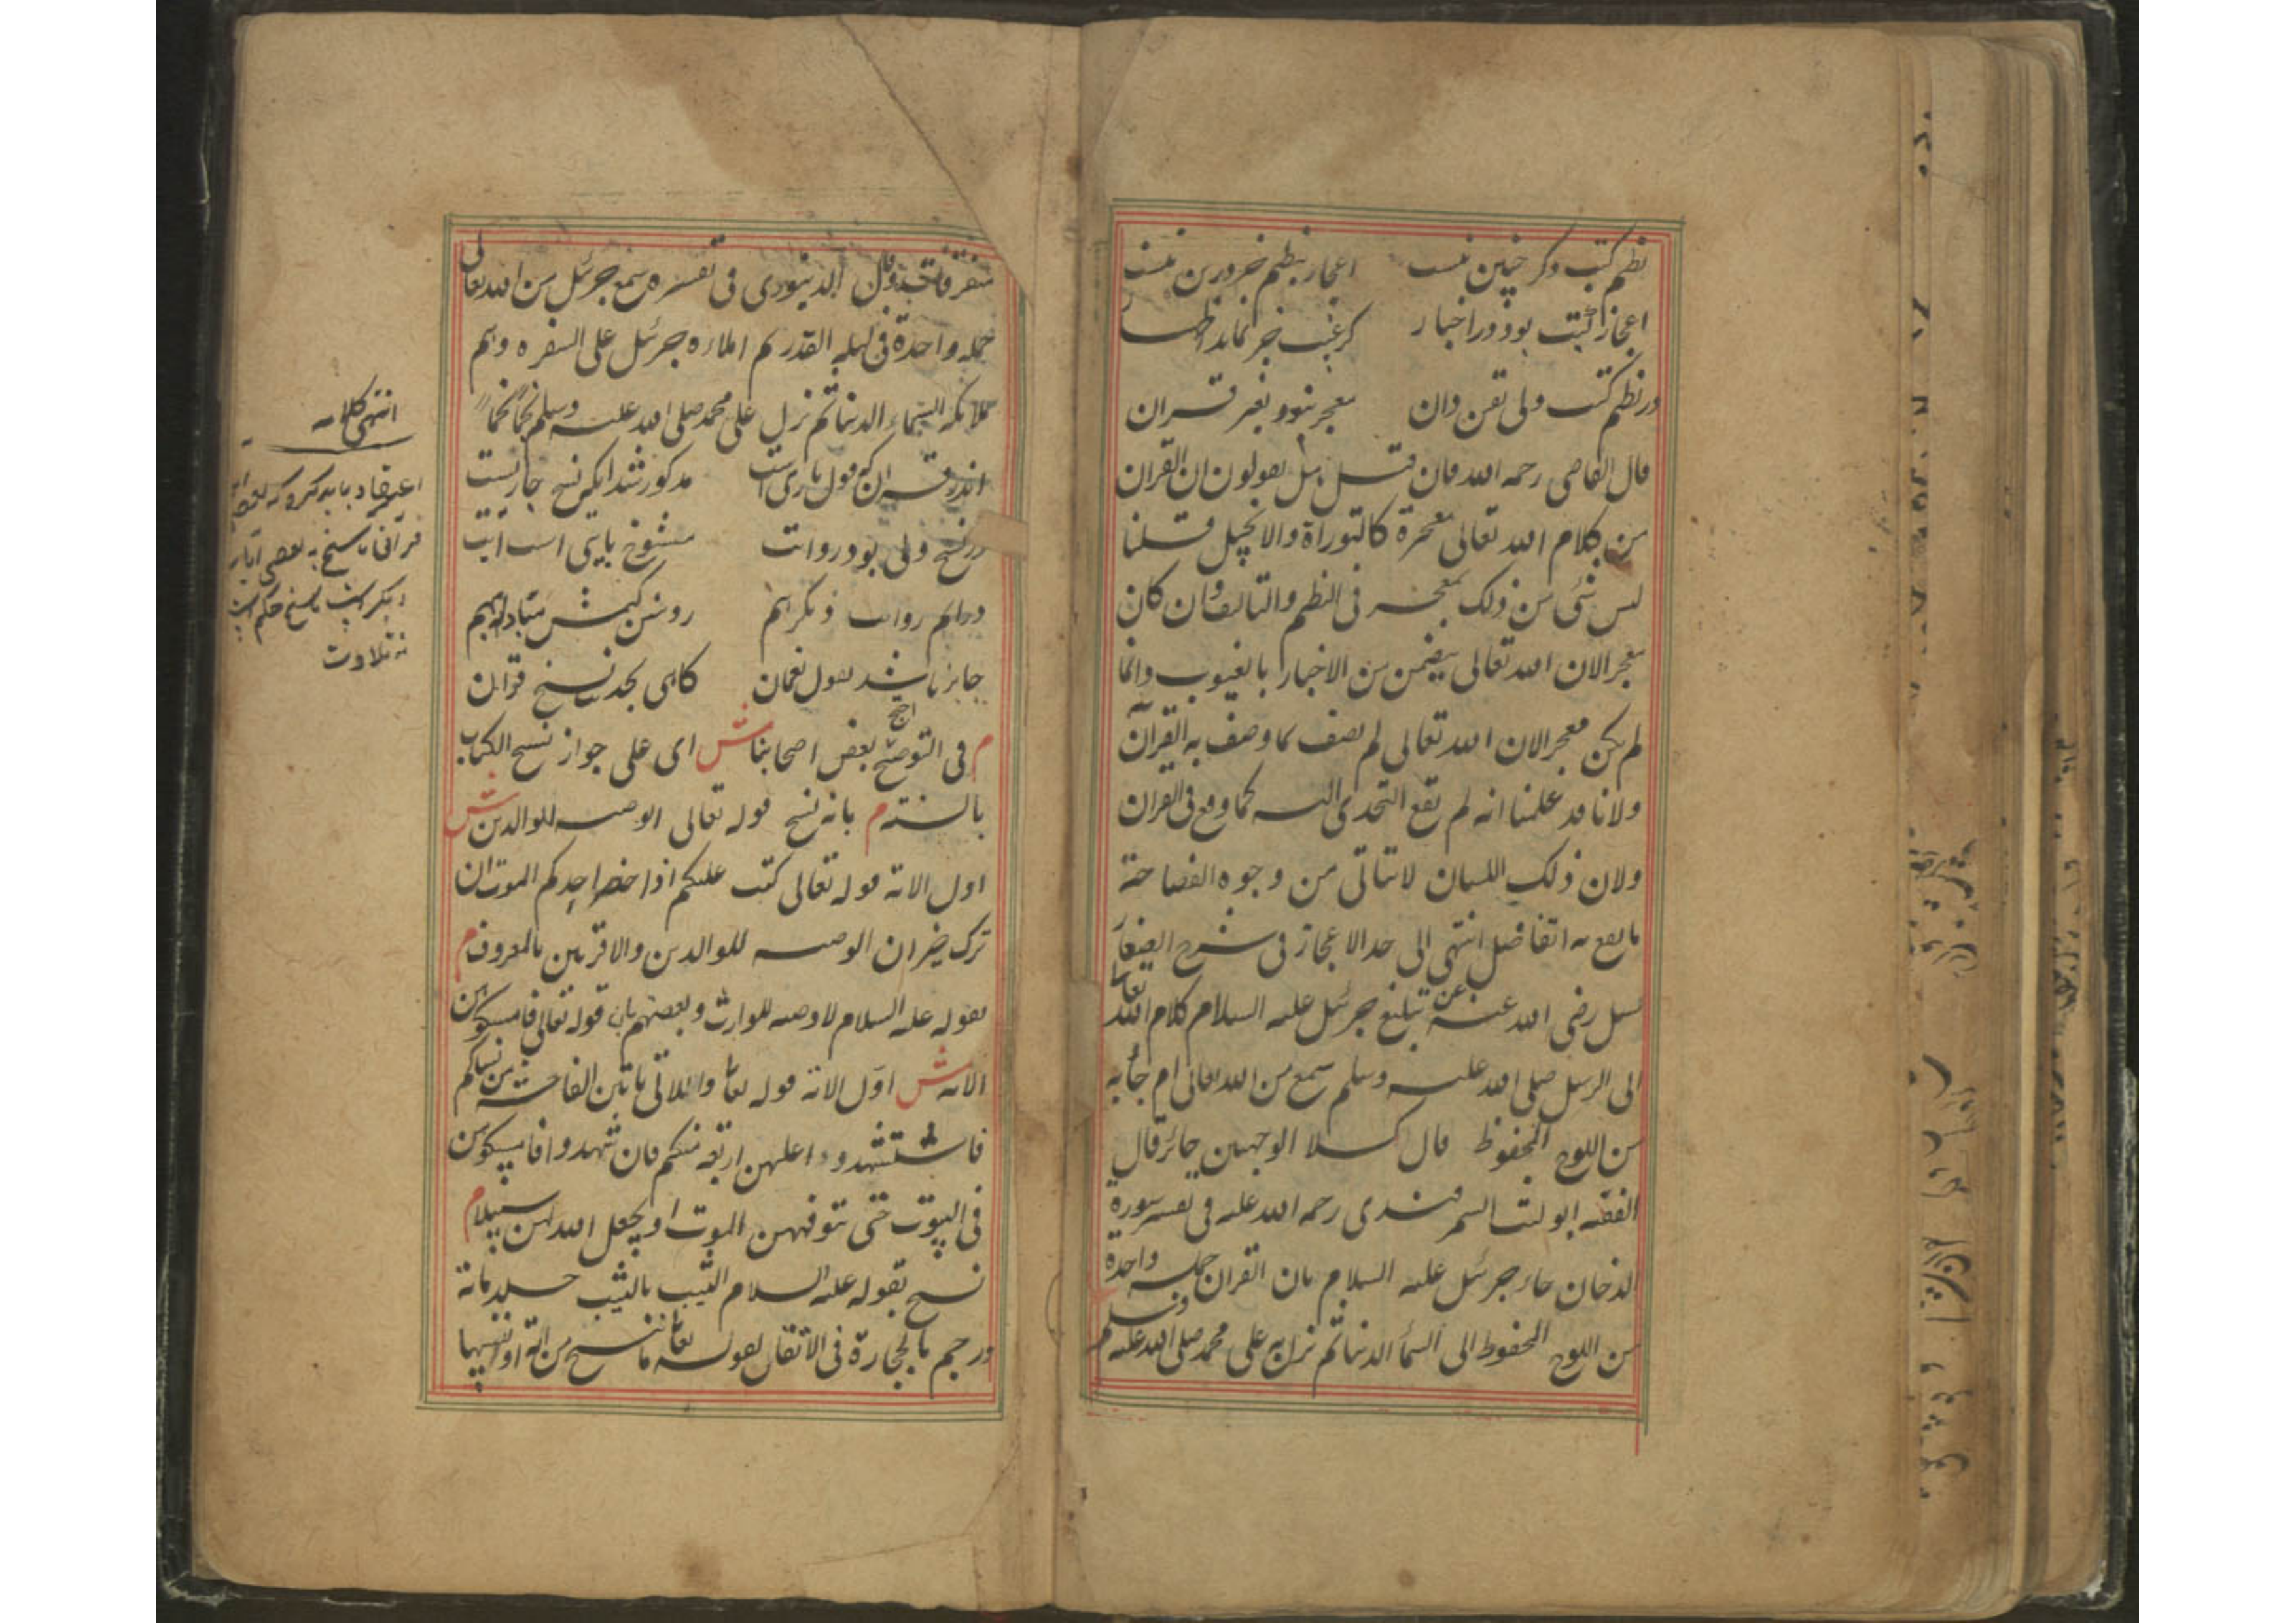 نظم کتب دکر چنین نیست اعجاز بنظم خرورین نیست
اعجاز کتب بود در اخبار کز غیب خبر نماید اظهار
در نظم کتب ولی یقین دان معجز نبود بغیر قران
قال القاضی رحمه الله فان قیل هل یقولون ان القران
من کلام الله تعالی معجزة کالتوراة والانجیل قلنا
لیس شئ من ذلک بمعجز فی النظم والتالیف وان کان
معجزا لان الله تعالی یتضمن من الاخبار بالغیوب وانما
لم یکن معجزا لان الله تعالی لم یصف بما وصف به القرآن
ولانا قد علمنا انه لم یقع التحدی الیه کما وقع فی القران
ولان ذلک اللسان لا تتاتی من وجوه الفصاحة
ما یقع به التفاضل انتهی الی حد الاعجاز فی شرح الصغار
سئل رضی الله عنه عن تبلیغ جبرئیل علیه السلام کلام الله تعالی
الی الرسل صلی الله علیه وسلم سمع من الله تعالی ام جاء به
من اللوح المحفوظ قال کلا الوجهین جائز قال
الفقیه ابو لیث السمرقندی رحمه الله علیه فی تفسیر سورة
الدخان جاء جبرئیل علیه السلام بان القران جملة واحدة
من اللوح المحفوظ الی السماء الدنیا ثم نزل به علی محمد صلی الله علیه وسلم
متفرقا وقال الدینوری فی تفسیره سمع جبرئیل من الله تعالی
جمله واحدة فی لیلة القدر ثم املاءه جبرئیل علی السفره وهم
ملائکه السماء الدنیا ثم نزل علی محمد صلی الله علیه وسلم نجما نجما
اندر قران که قول باری است مذکور شد اینکه نسخ جاریست
در نسخ ولی بود روایت منسوخ بایتی است آیت
دوایم روایت دیکر انهم روشن کنمش بتبادلهم
جایز باشد بقول نعمان کاهی بحدیث نسخ قران
م فی التوضیح احتج بعض اصحابنا ش ای علی جواز نسخ الکتاب
بالسنة م بانه نسخ قوله تعالی الوصیه للوالدین ش
اول الایة قوله تعالی کتب علیکم اذا حضر احدکم الموت ان
ترک خیرا ن الوصیه للوالدین والاقربین بالمعروف م
بقوله علیه السلام لا وصیه للوارث وبعضهم بان قوله تعالی فامسکوهن
الایه ش اول الایة قوله تعا واللاتی یاتین الفاحشة من نسائکم
فاستشهدوا علیهن اربعة منکم فان شهدوا فامسکوهن
فی البیوت حتی یتوفهن الموت او یجعل الله لهن سبیلا م
نسخ بقوله علیه السلام الثیب بالثیب جلد مائة
ورجم بالحجارة فی الاتقان لقوله تعا ما ننسخ من آیة او ننسها
انتهی کلامه
اعتقاد باید کرد که بعض ایت
قرآنی ناسخ به بعضی ایات
دیکر است ناسخ حکم است
نه تلاوت